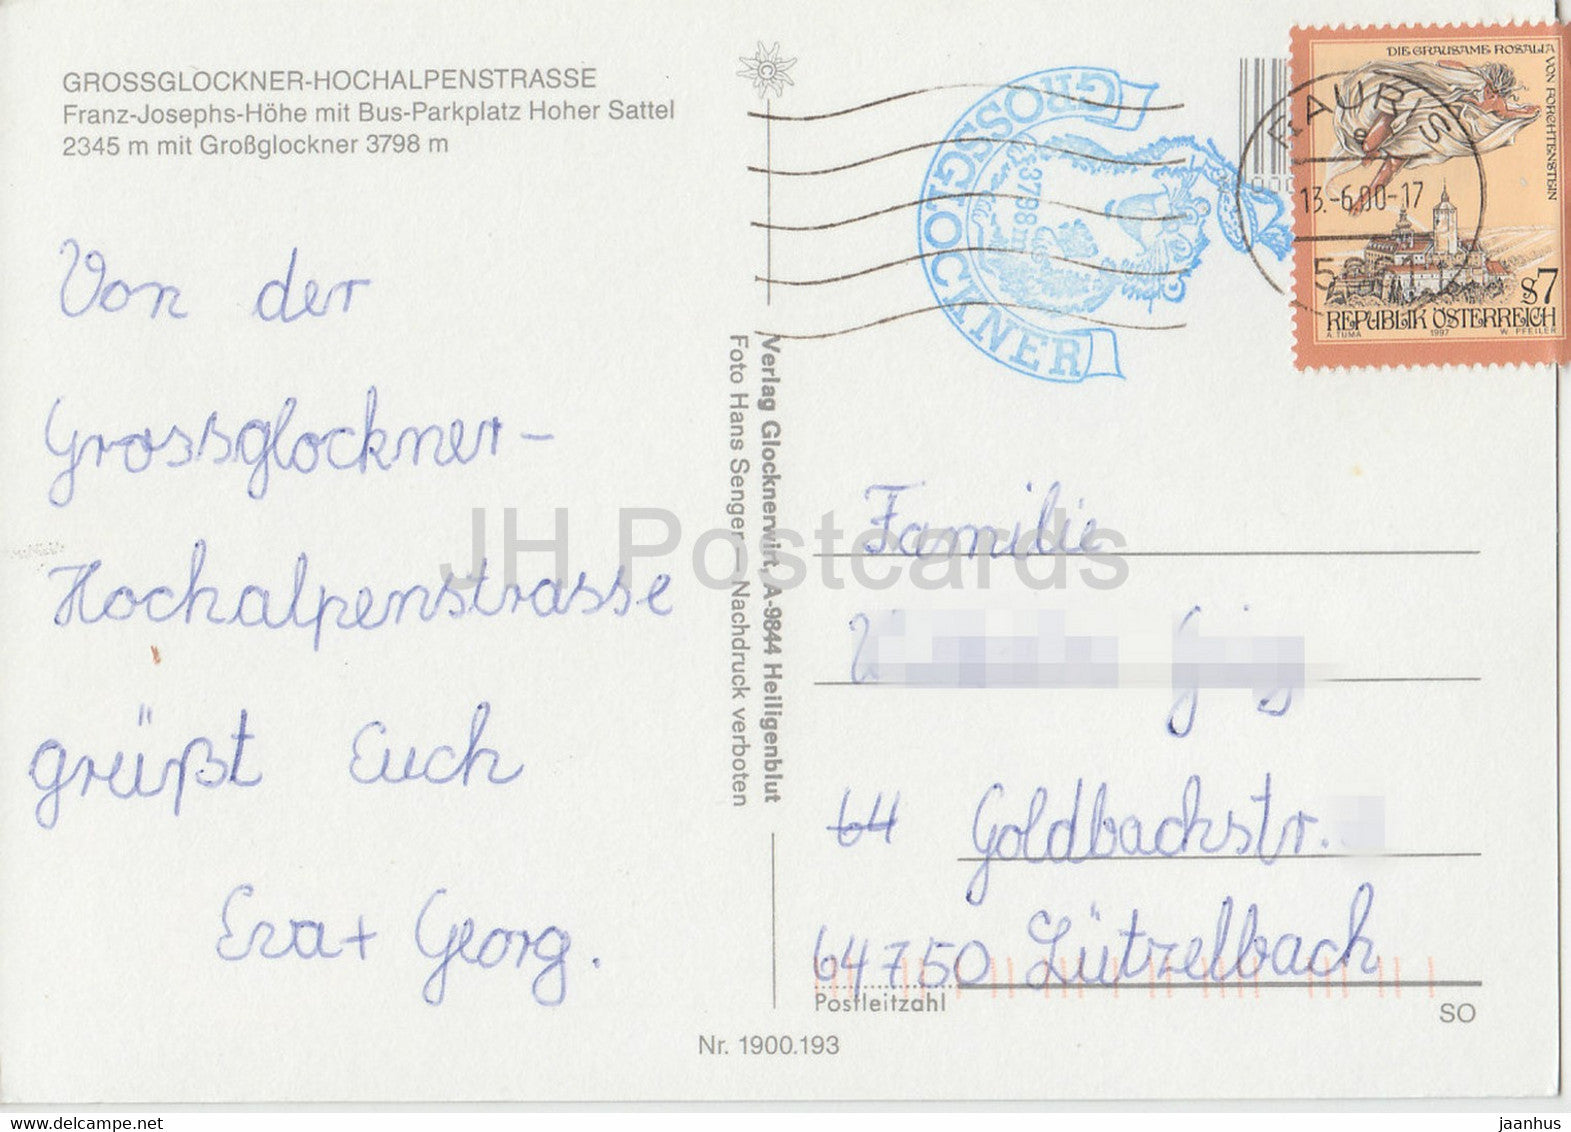 GROSSGLOCKNER-HOCHALPENSTRASSE
Franz-Josephs-Höhe mit Bus-Parkplatz Hoher Sattel
2345 m mit Großglockner 3798 m
Von der
Grossglockner-
Hochalpenstrasse
grüßt Euch
Eva + Georg.
Verlag Glocknerwirt, A-9844 Heiligenblut
Foto Hans Senger – Nachdruck verboten
GROSSGLOCKNER
3798 m
RAURIS
13.-6.00-17
DIE GRAUSAME ROSALIA
VON FORCHTENSTEIN
S7
REPUBLIK ÖSTERREICH
A. TUMA 1997 W. PFEILER
JH Postcards
Familie
64 Goldbachstr.
64750 Lützelbach
Postleitzahl
SO
Nr. 1900.193
jaanhus